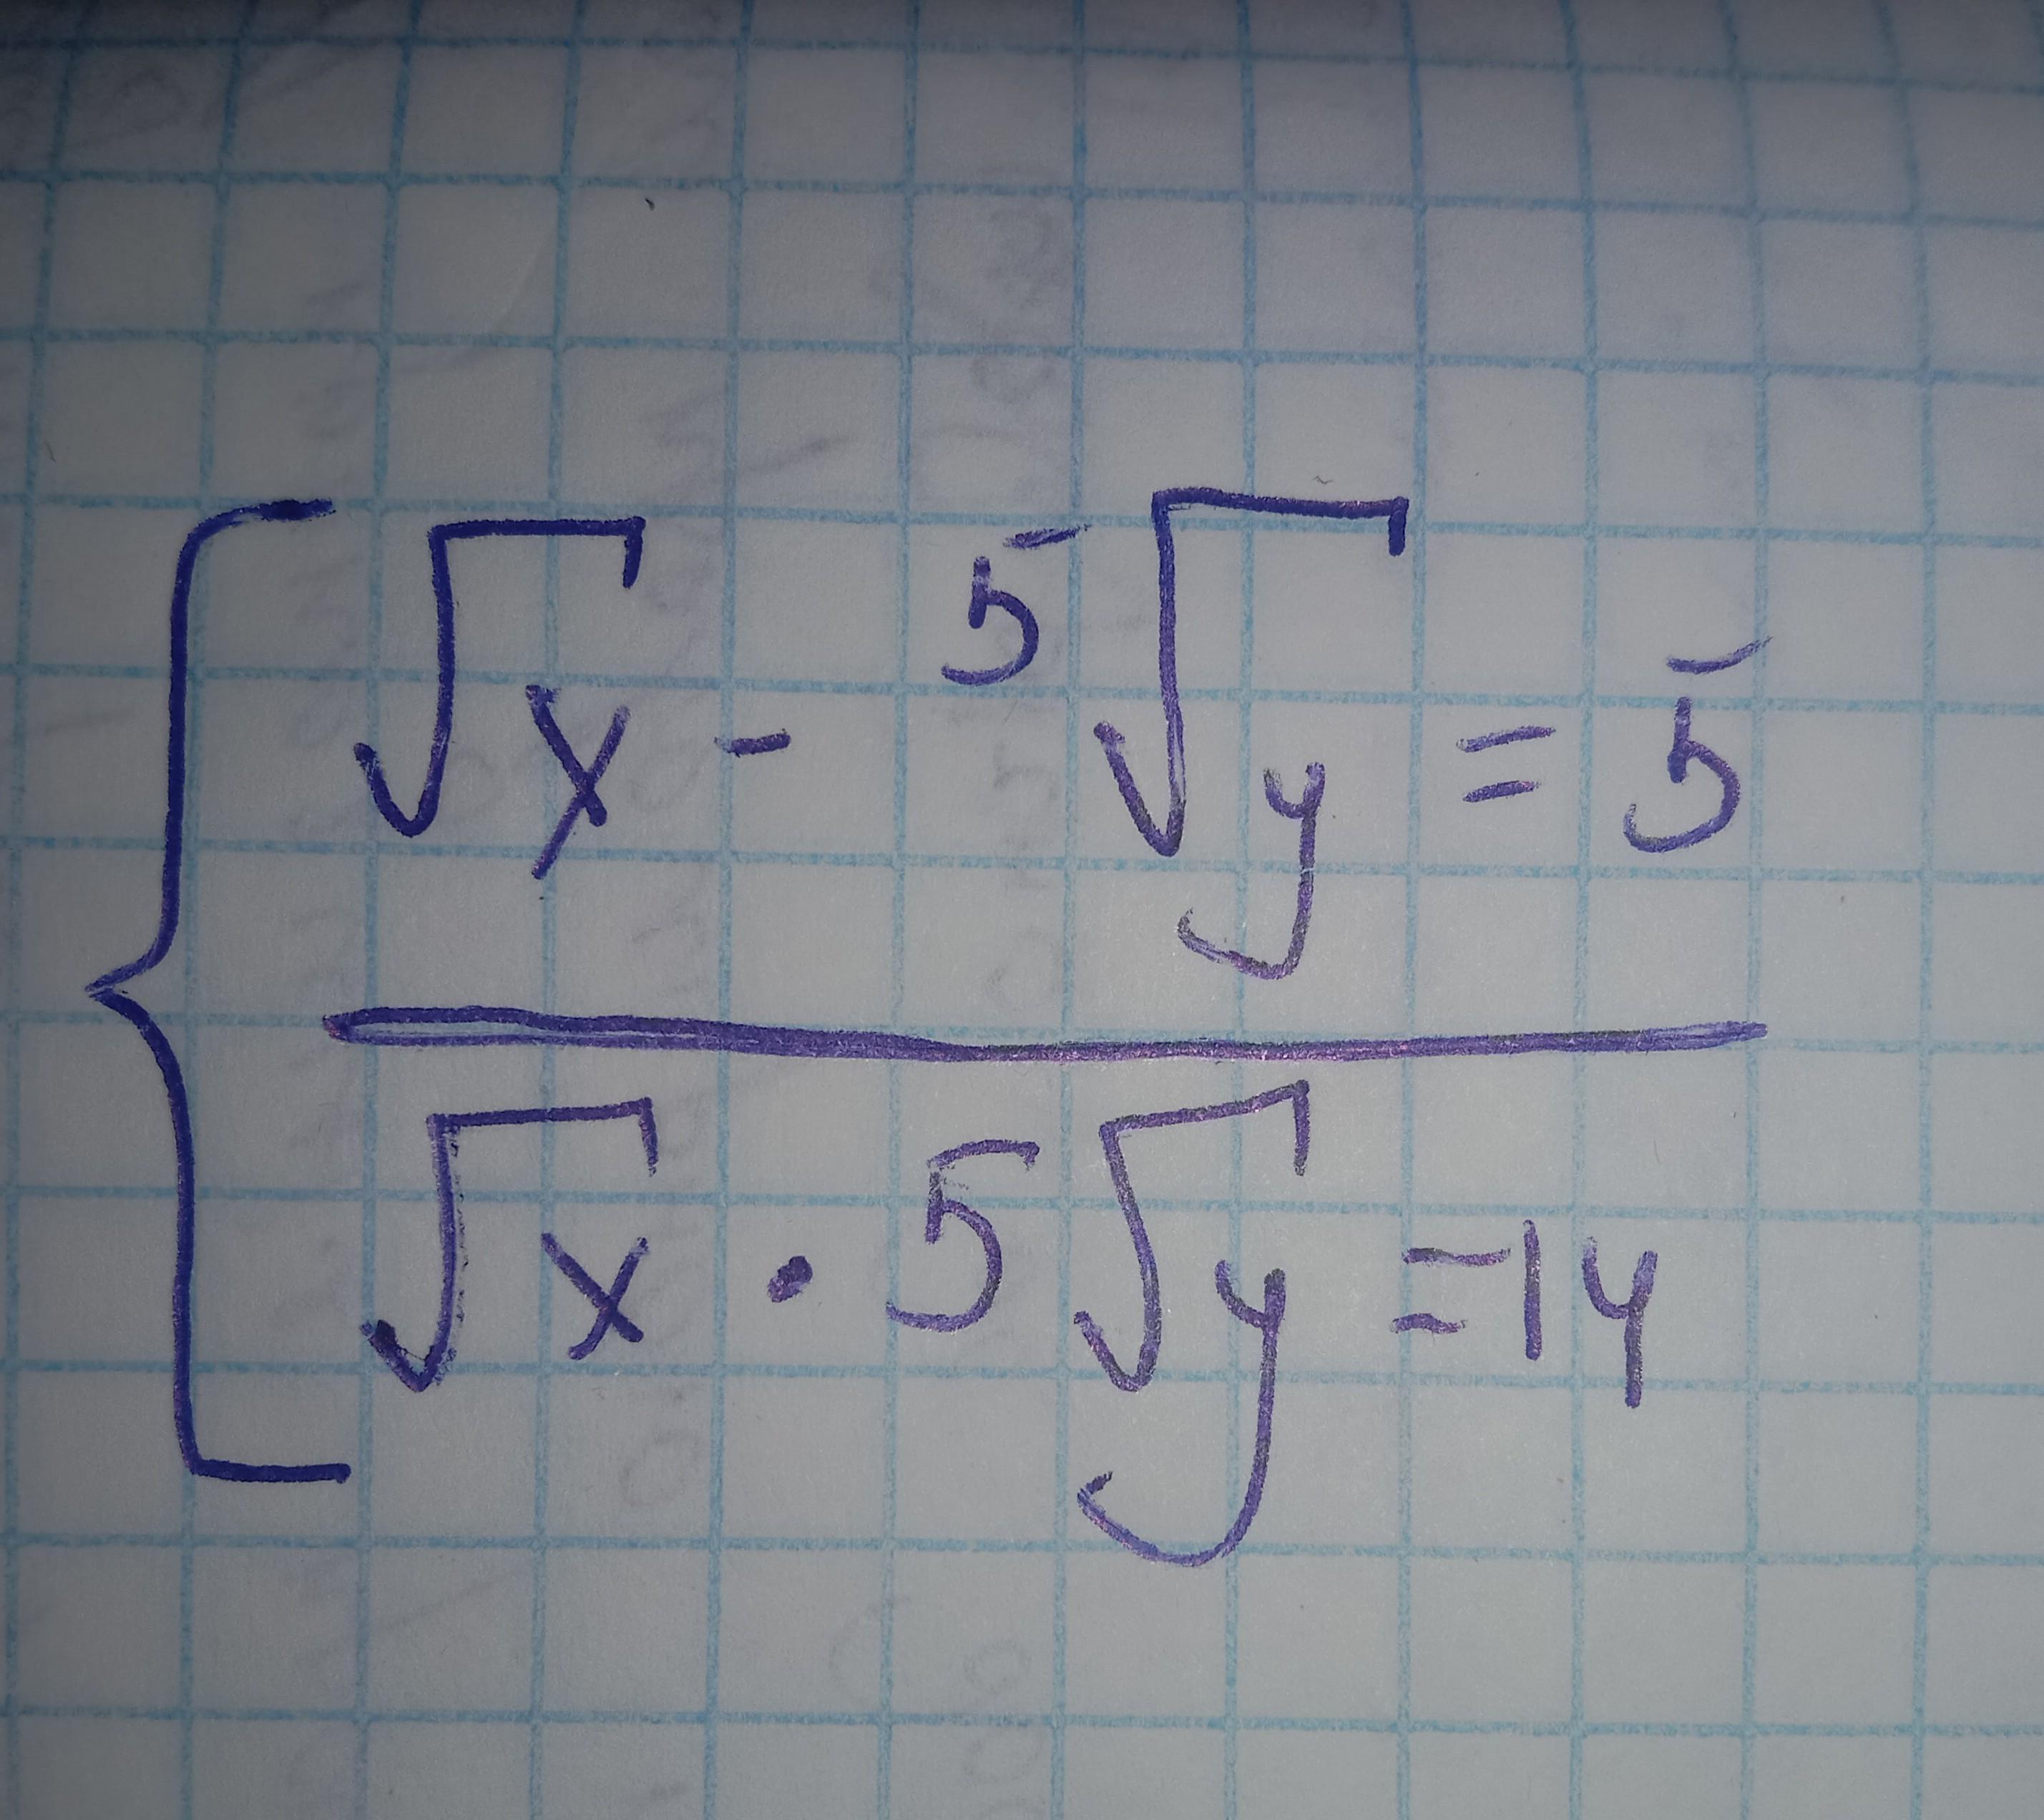 √x - ⁵√y = 5
√x · 5√y = 14